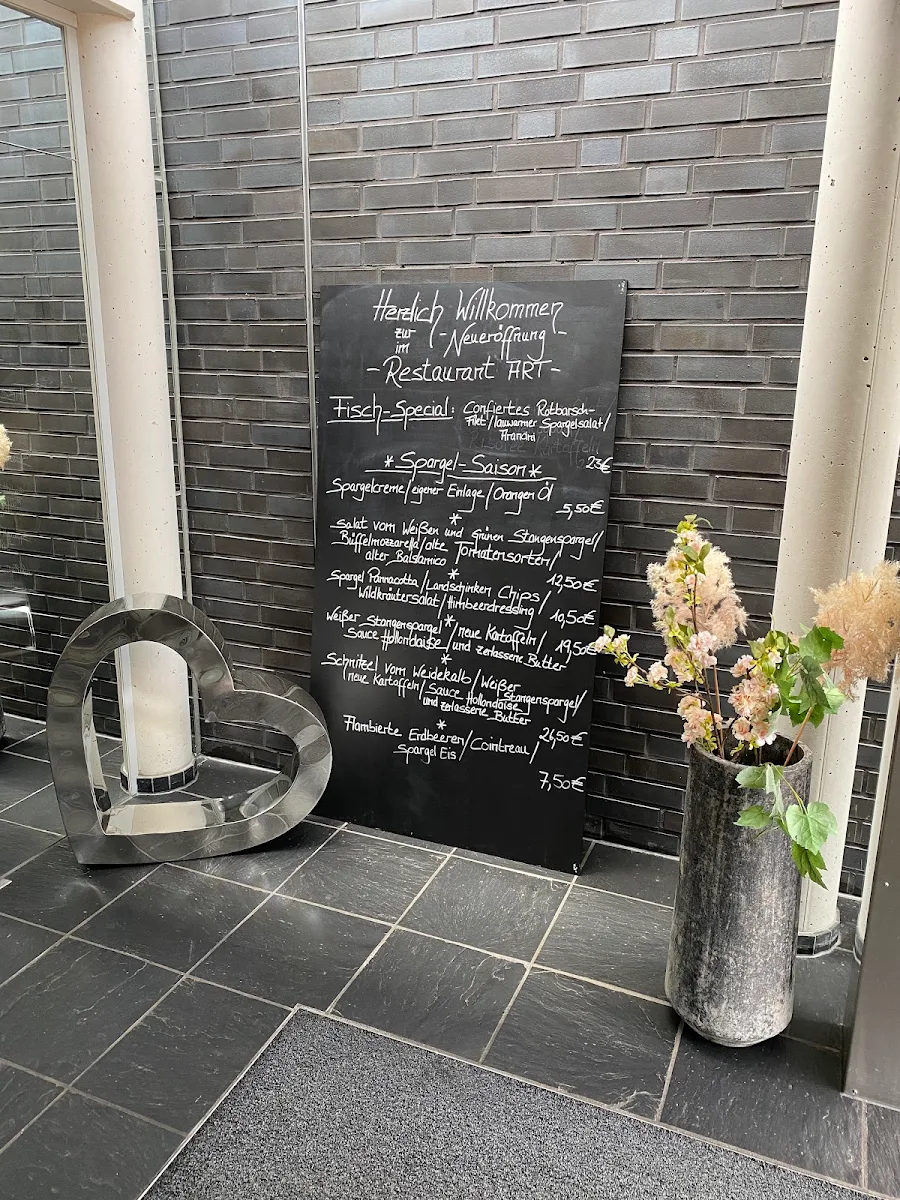 Herzlich Willkommen
zur - Neueröffnung -
im
- Restaurant ART -
Fisch-Special: Confiertes Rotbarsch-
filet/lauwarmer Spargelsalat/
23€
* Spargel-Saison *
Spargelcreme/eigener Einlage/Orangen Öl
5,50€
*
Salat vom Weißen und Grünen Stangenspargel/
Büffelmozzarella/alte Tomatensorten/
alter Balsamico
12,50€
*
Spargel Pannacotta/Landschinken Chips/
Wildkräutersalat/Himbeerdressing/
10,50€
*
Weißer Stangenspargel/neue Kartoffeln/
Sauce Hollondaise/und zerlassene Butter
19,50€
*
Schnitzel vom Weidekalb/Weißer
Stangenspargel/
neue Kartoffeln/Sauce Hollondaise
und zerlassene Butter
26,50€
*
Flambierte Erdbeeren/Cointreau/
Spargel Eis/
7,50€